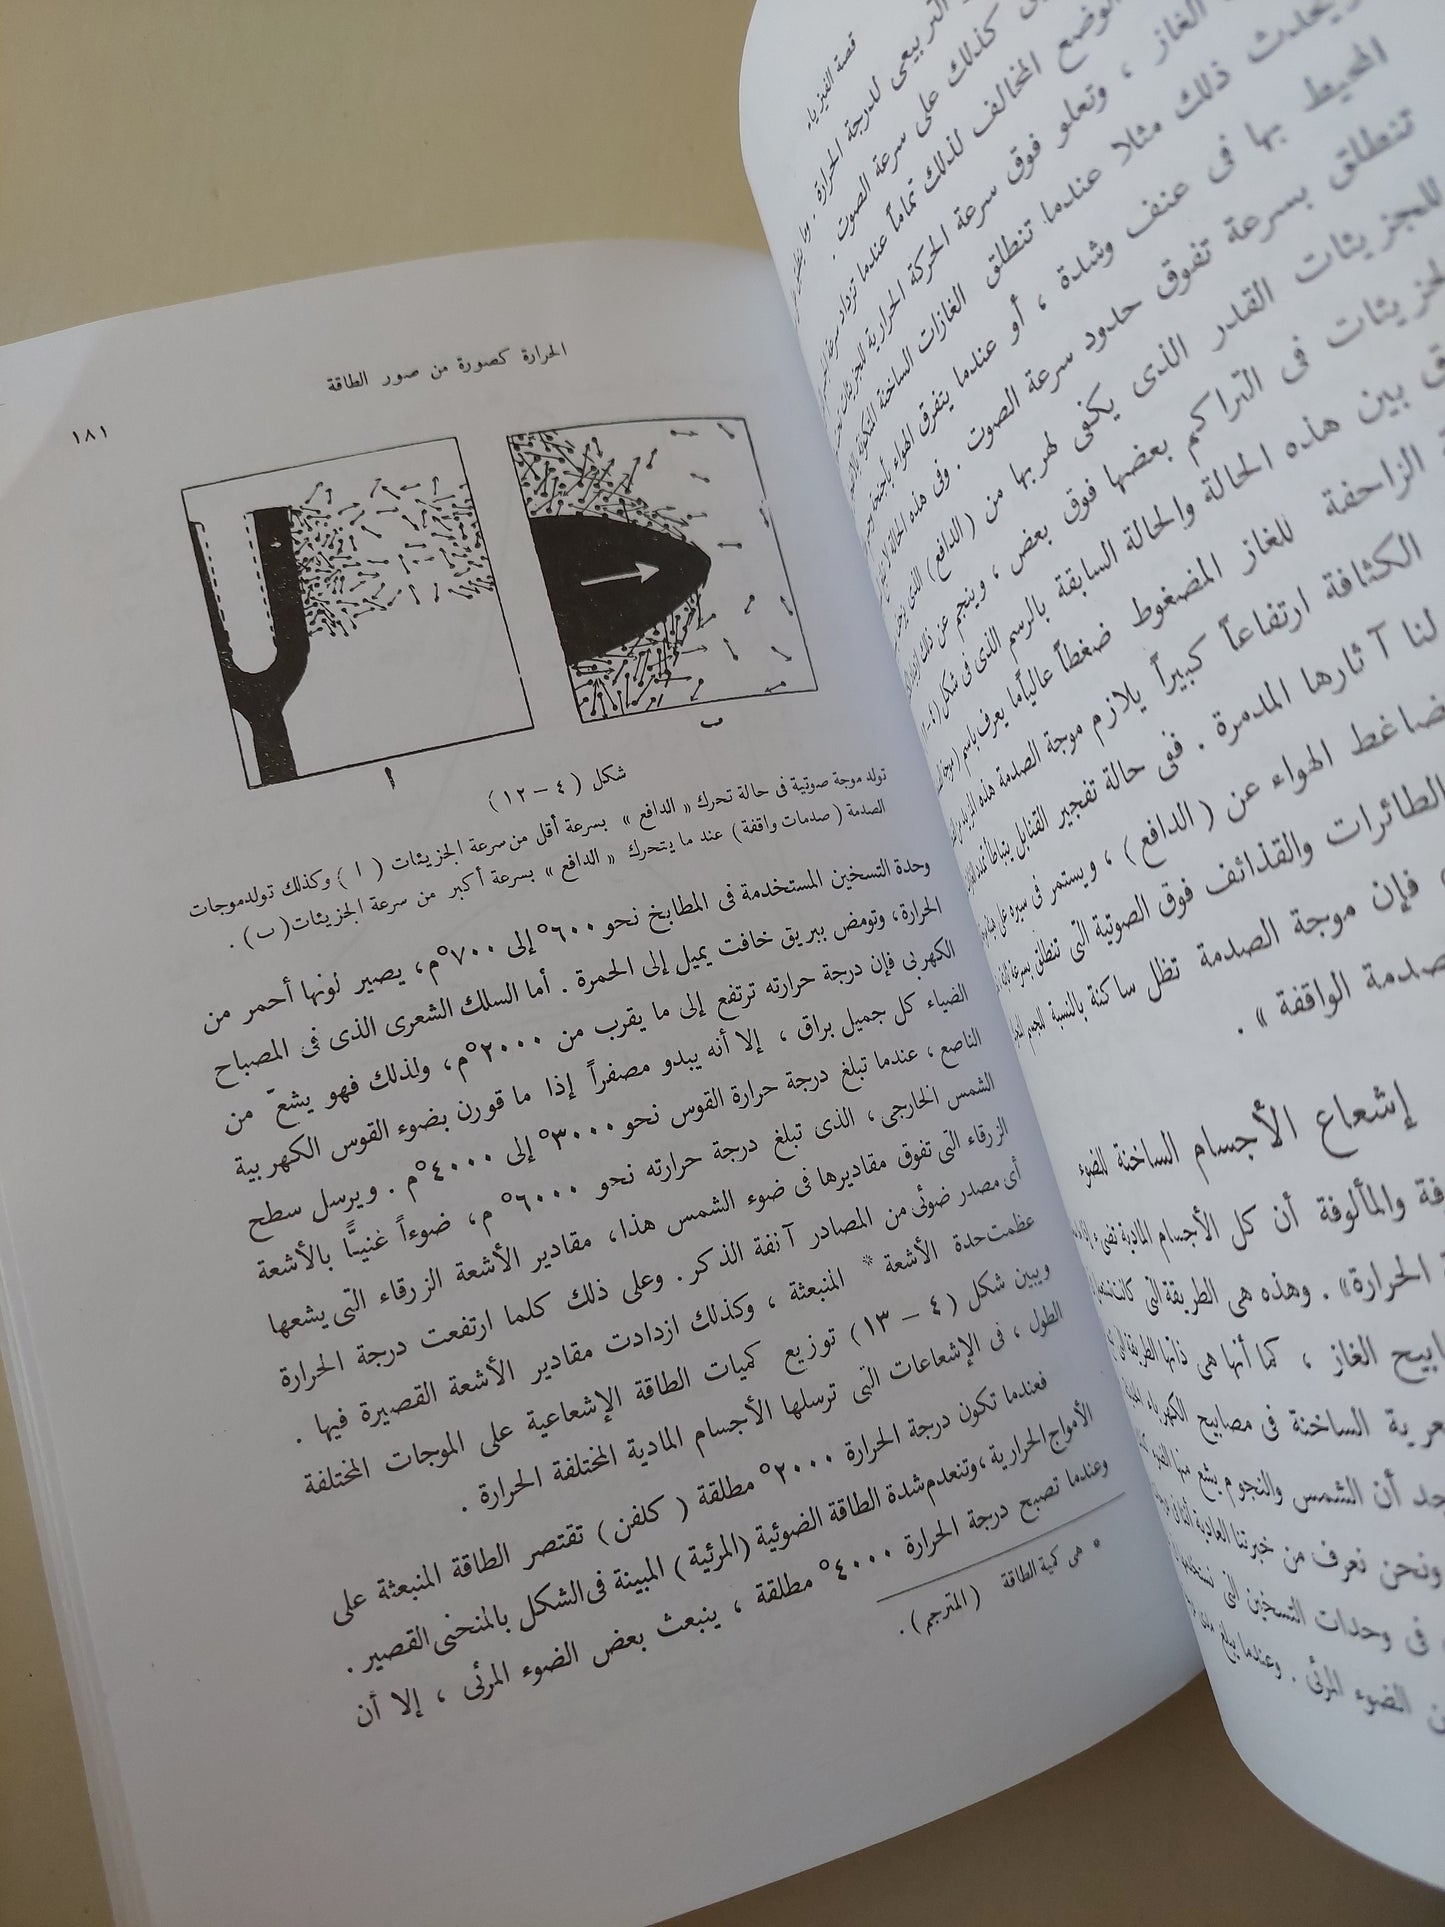 قصة الفيزياء
التربيعى للدرجة الحرارة . وما
كذلك على سرعة الصوت .
الوضع المخالف لذلك تماماً عندما تزداد سرعة
الغاز ، وتعلو فوق سرعة الحركة الحرارية للجزيئات
ويحدث ذلك مثلا عندما تنطلق الغازات الساخنة
المحيط بها فى عنف وشدة ، أو عندما يتفرق الهواء
تنطلق بسرعة تفوق حدود سرعة الصوت . وفى هذه الحالة
للجزيئات القدر الذى يكفى لهربها من (الدافع) الذى
فى التراكم بعضها فوق بعض ، وينجم عن ذلك
بين هذه الحالة والحالة السابقة بالرسم الذى فى شكل
الزاحفة للغاز المضغوط ضغطاً عالياً ما يعرف باسم
الكثافة ارتفاعاً كبيراً يلازم موجة الصدمة هذه
لنا آثارها المدمرة . ففى حالة تفجير القنابل
الهواء عن (الدافع) ، ويستمر فى سيره على
الطائرات والقذائف فوق الصوتية التى تنطلق بسرعة
فإن موجة الصدمة تظل ساكنة بالنسبة للجسم
الواقفة » .
إشعاع الأجسام الساخنة للضوء
والمألوفة أن كل الأجسام المادية تضىء
الحرارة» . وهذه هى الطريقة التى كانت
الغاز ، كما أنها هى ذاتها الطريقة
الساخنة فى مصابيح الكهرباء
أن الشمس والنجوم يشع منها الضوء
ونحن نعرف من خبرتنا العادية
فى وحدات التسخين التى
الضوء المرئى . وعندما يبلغ
الحرارة كصورة من صور الطاقة
١٨١
ا
ب
شكل ( ٤ – ١٢ )
تولد موجة صوتية فى حالة تحرك « الدافع » بسرعة أقل من سرعة الجزيئات ( ا ) وكذلك تولد موجات
الصدمة ( صدمات واقفة ) عند ما يتحرك « الدافع » بسرعة أكبر من سرعة الجزيئات ( ب ) .
وحدة التسخين المستخدمة فى المطابخ نحو ٦٠٠° إلى ٧٠٠°م، يصير لونها أحمر من
الحرارة، وتومض ببريق خافت يميل إلى الحمرة . أما السلك الشعرى الذى فى المصباح
الكهربى فإن درجة حرارته ترتفع إلى ما يقرب من ٢٠٠٠°م، ولذلك فهو يشعّ من
الضياء كل جميل براق ، إلا أنه يبدو مصفراً إذا ما قورن بضوء القوس الكهربية
الناصع ، عندما تبلغ درجة حرارة القوس نحو ٣٠٠٠° إلى ٤٠٠٠°م . ويرسل سطح
الشمس الخارجى ، الذى تبلغ درجة حرارته نحو ٦٠٠٠°م، ضوءاً غنيًّا بالأشعة
الزرقاء التى تفوق مقاديرها فى ضوء الشمس هذا، مقادير الأشعة الزرقاء التى يشعها
أى مصدر ضوئى من المصادر آنفة الذكر . وعلى ذلك كلما ارتفعت درجة الحرارة
عظمت حدة الأشعة * المنبعثة ، وكذلك ازدادت مقادير الأشعة القصيرة فيها .
ويبين شكل ( ٤ – ١٣ ) توزيع كميات الطاقة الإشعاعية على الموجات المختلفة
الطول ، فى الإشعاعات التى ترسلها الأجسام المادية المختلفة الحرارة .
فعندما تكون درجة الحرارة ٢٠٠٠° مطلقة ( كلفن ) تقتصر الطاقة المنبعثة على
الأمواج الحرارية ، وتنعدم شدة الطاقة الضوئية (المرئية) المبينة فى الشكل بالمنحنى القصير .
وعندما تصبح درجة الحرارة ٤٠٠٠° مطلقة ، ينبعث بعض الضوء المرئى ، إلا أن
* هى كمية الطاقة ( المترجم ) .